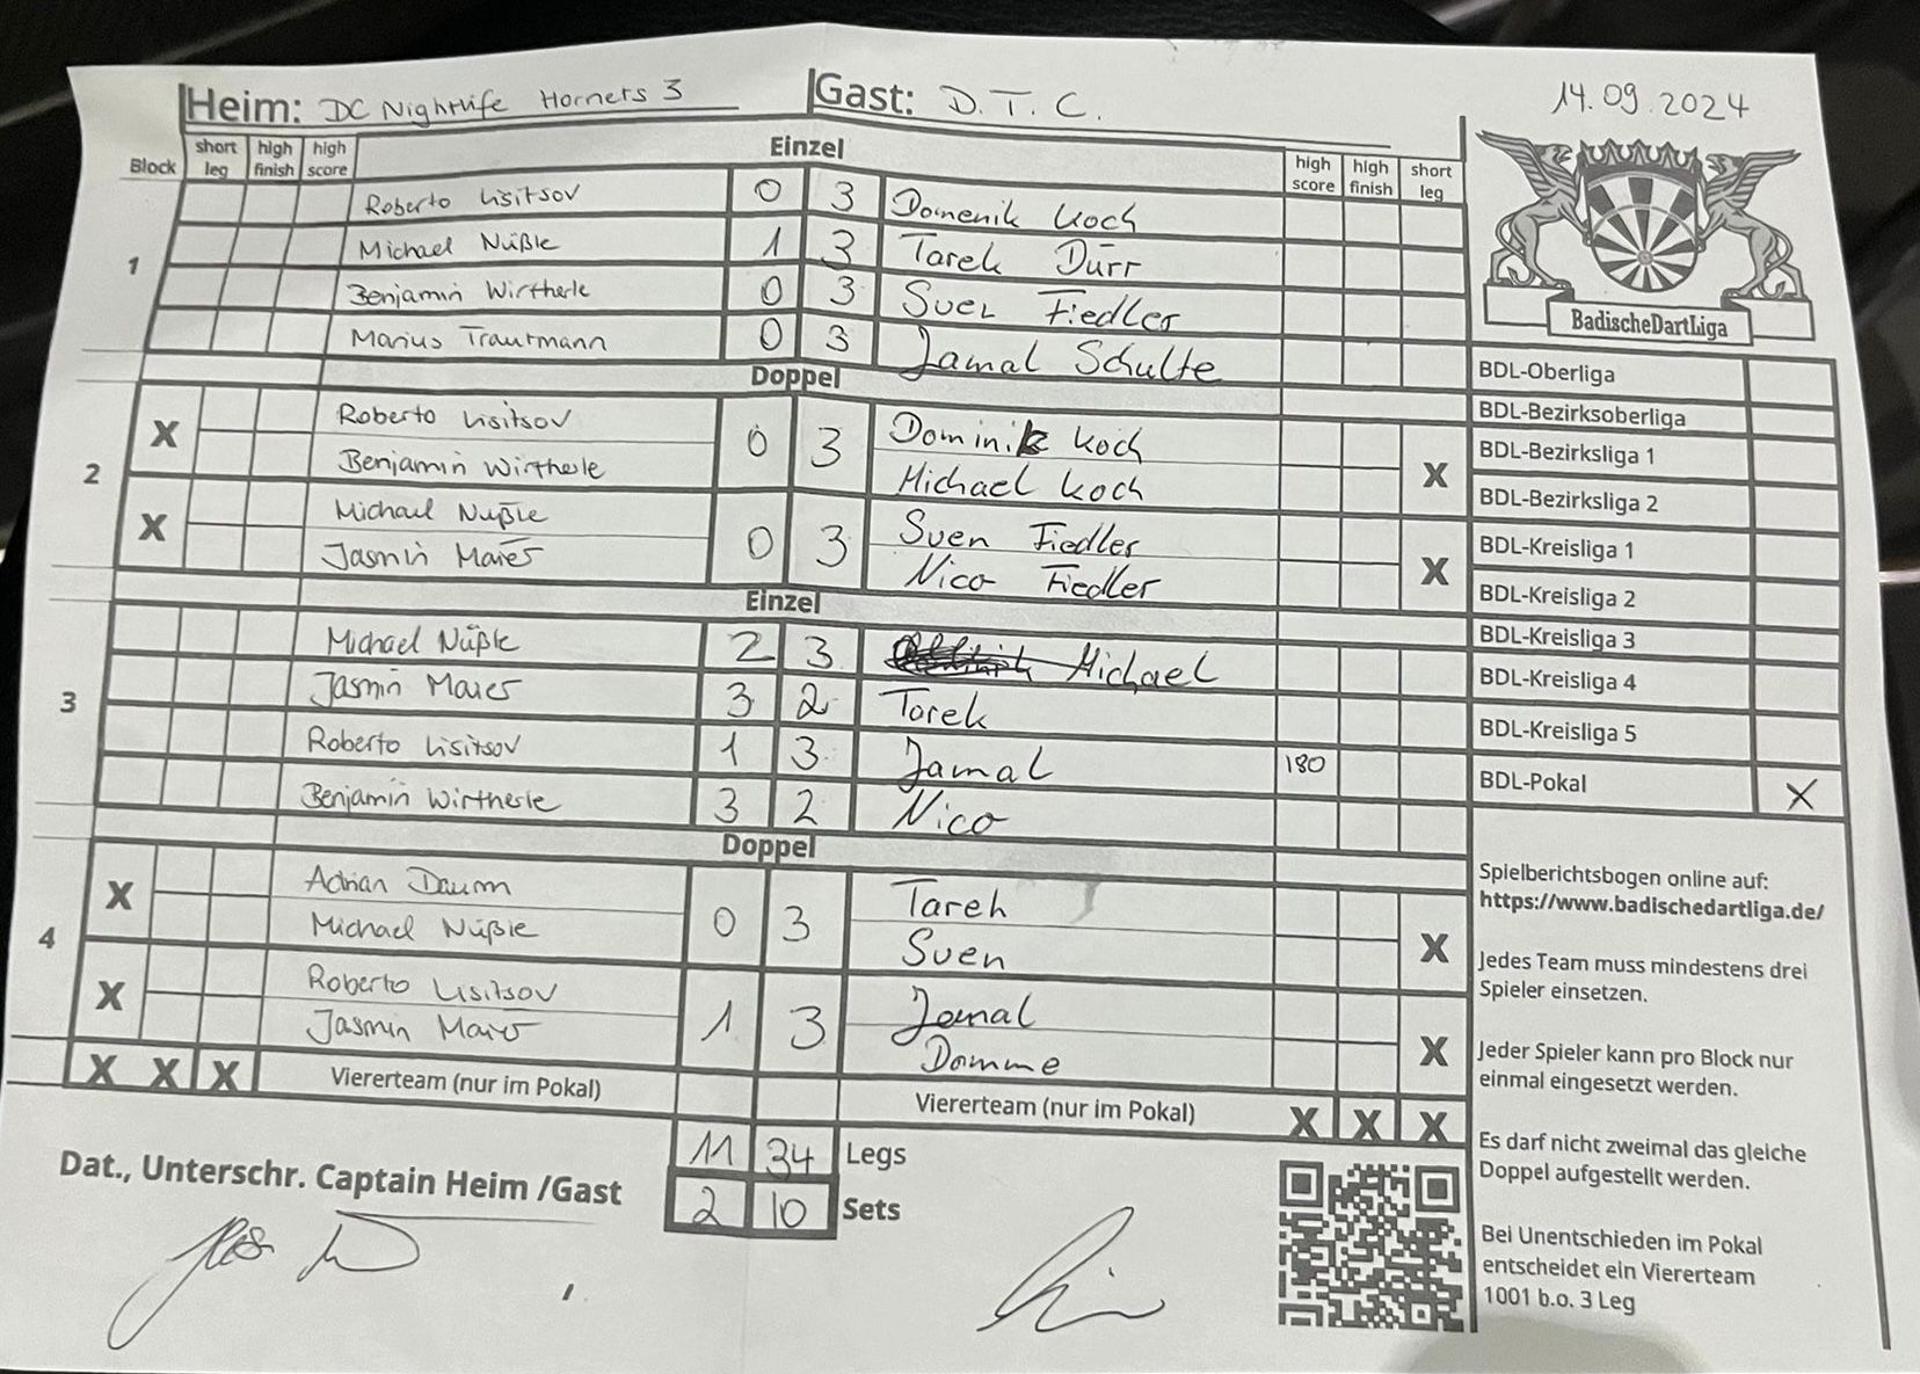 Heim: DC Nightlife Horners 3 Gast: D. T. C. 14.09.2024
Block short leg high finish high score Einzel high score high finish short leg
1
Roberto Lisitsov 0 3 Domenik Koch
Michael Nüßle 1 3 Tarek Dürr
Benjamin Wirtherle 0 3 Sven Fiedler
Marius Trautmann 0 3 Jamal Schulte
Doppel
2
X Roberto Lisitsov 0 3 Dominik Koch X
Benjamin Wirtherle Michael Koch
X Michael Nüßle 0 3 Sven Fiedler X
Jasmin Maier Nico Fiedler
Einzel
3
Michael Nüßle 2 3 Michael
Jasmin Maier 3 2 Tarek
Roberto Lisitsov 1 3 Jamal 180
Benjamin Wirtherle 3 2 Nico
Doppel
4
X Adrian Daum 0 3 Tarek X
Michael Nüßle Sven
X Roberto Lisitsov 1 3 Jamal X
Jasmin Maier Domme
X X X Viererteam (nur im Pokal) Viererteam (nur im Pokal) X X X
11 34 Legs
2 10 Sets
Dat., Unterschr. Captain Heim /Gast
BadischeDartLiga
BDL-Oberliga
BDL-Bezirksoberliga
BDL-Bezirksliga 1
BDL-Bezirksliga 2
BDL-Kreisliga 1
BDL-Kreisliga 2
BDL-Kreisliga 3
BDL-Kreisliga 4
BDL-Kreisliga 5
BDL-Pokal X
Spielberichtsbogen online auf:
https://www.badischedartliga.de/
Jedes Team muss mindestens drei
Spieler einsetzen.
Jeder Spieler kann pro Block nur
einmal eingesetzt werden.
Es darf nicht zweimal das gleiche
Doppel aufgestellt werden.
Bei Unentschieden im Pokal
entscheidet ein Viererteam
1001 b.o. 3 Leg